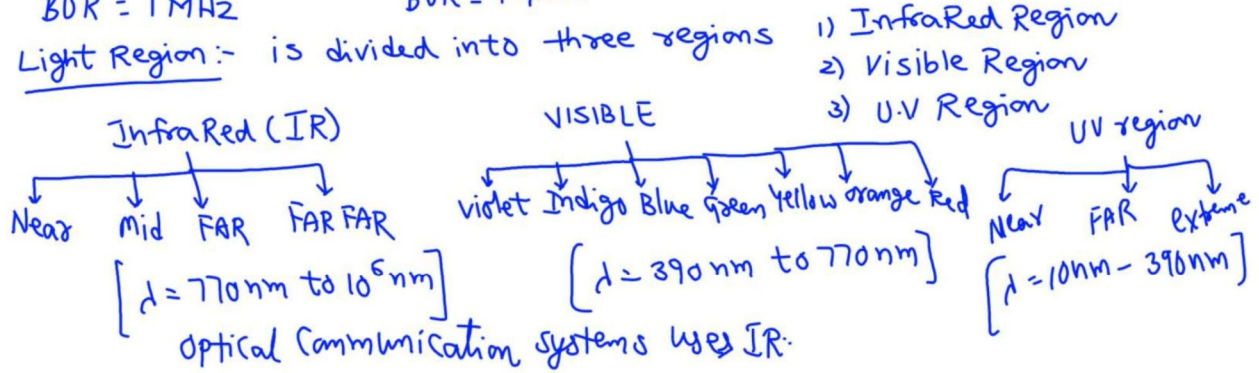 BDR = 1 MHz
Light Region:- is divided into three regions 1) InfraRed Region
2) Visible Region
3) U.V Region
InfraRed (IR)
Near Mid FAR FAR FAR
[λ = 770nm to 10⁶nm]
VISIBLE
violet Indigo Blue Green Yellow orange Red
[λ = 390nm to 770nm]
UV region
Near FAR extreme
[λ = 10nm - 390nm]
optical Communication systems uses IR.